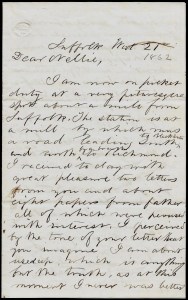 Suffolk Wed 21st
1862
Dear Nellie,
I am now on picket
duty at a very picturesque
spot about a mile from
Suffolk. The station is at
a mill by which runs
a road leading South
and north to Richmond.
I received to day with
great pleasure two letters
from you and about
eight papers from father
all of which were perused
with interest. I perceived
by the tone of your letter that
you imagine I am about
used up which is anything
but the truth, as at this
moment I never was better